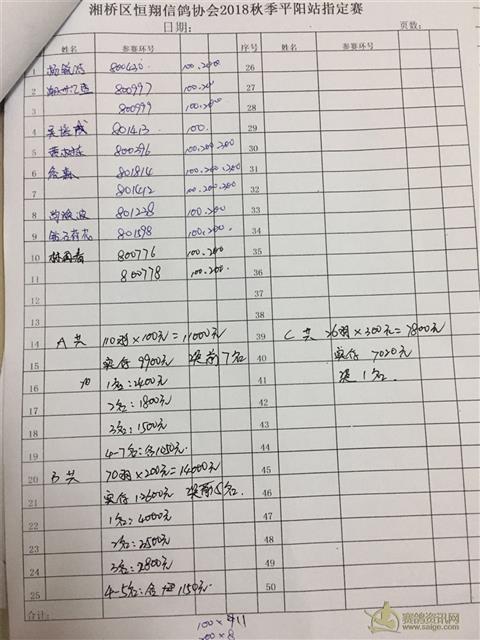 湘桥区恒翔信鸽协会2018秋季平阳站指定赛
日期: 页数:
姓名 参赛环号 序号 姓名 参赛环号
1 800430 100.200 26
2 800997 100.200 27
3 800999 100.200 28
4 801413 100. 29
5 800296 100.200.300 30
6 801814 100.200.300 31
7 801412 100.200.300 32
8 801228 100.200 33
9 801598 100.200. 34
10 800776 100.200 35
11 800778 100.200 36
12 37
13 38
14 A共 110羽×100元=11000元 39 C共 26羽×300元=7800元
15 实存9900元 提前7名 40 实存 7020元
16 1名:2400元 41 提1名.
17 2名:1800元 42
18 3名:1500元 43
19 4-7名:各1050元. 44
20 B共 70羽×200元=14000元 45
21 实存12600元 提前5名. 46
22 1名:4000元 47
23 2名:3500元 48
24 3名:2800元 49
25 4-5名:各 1150元. 50
合计:
100×
200×8
赛鸽资讯网
www.saige.com